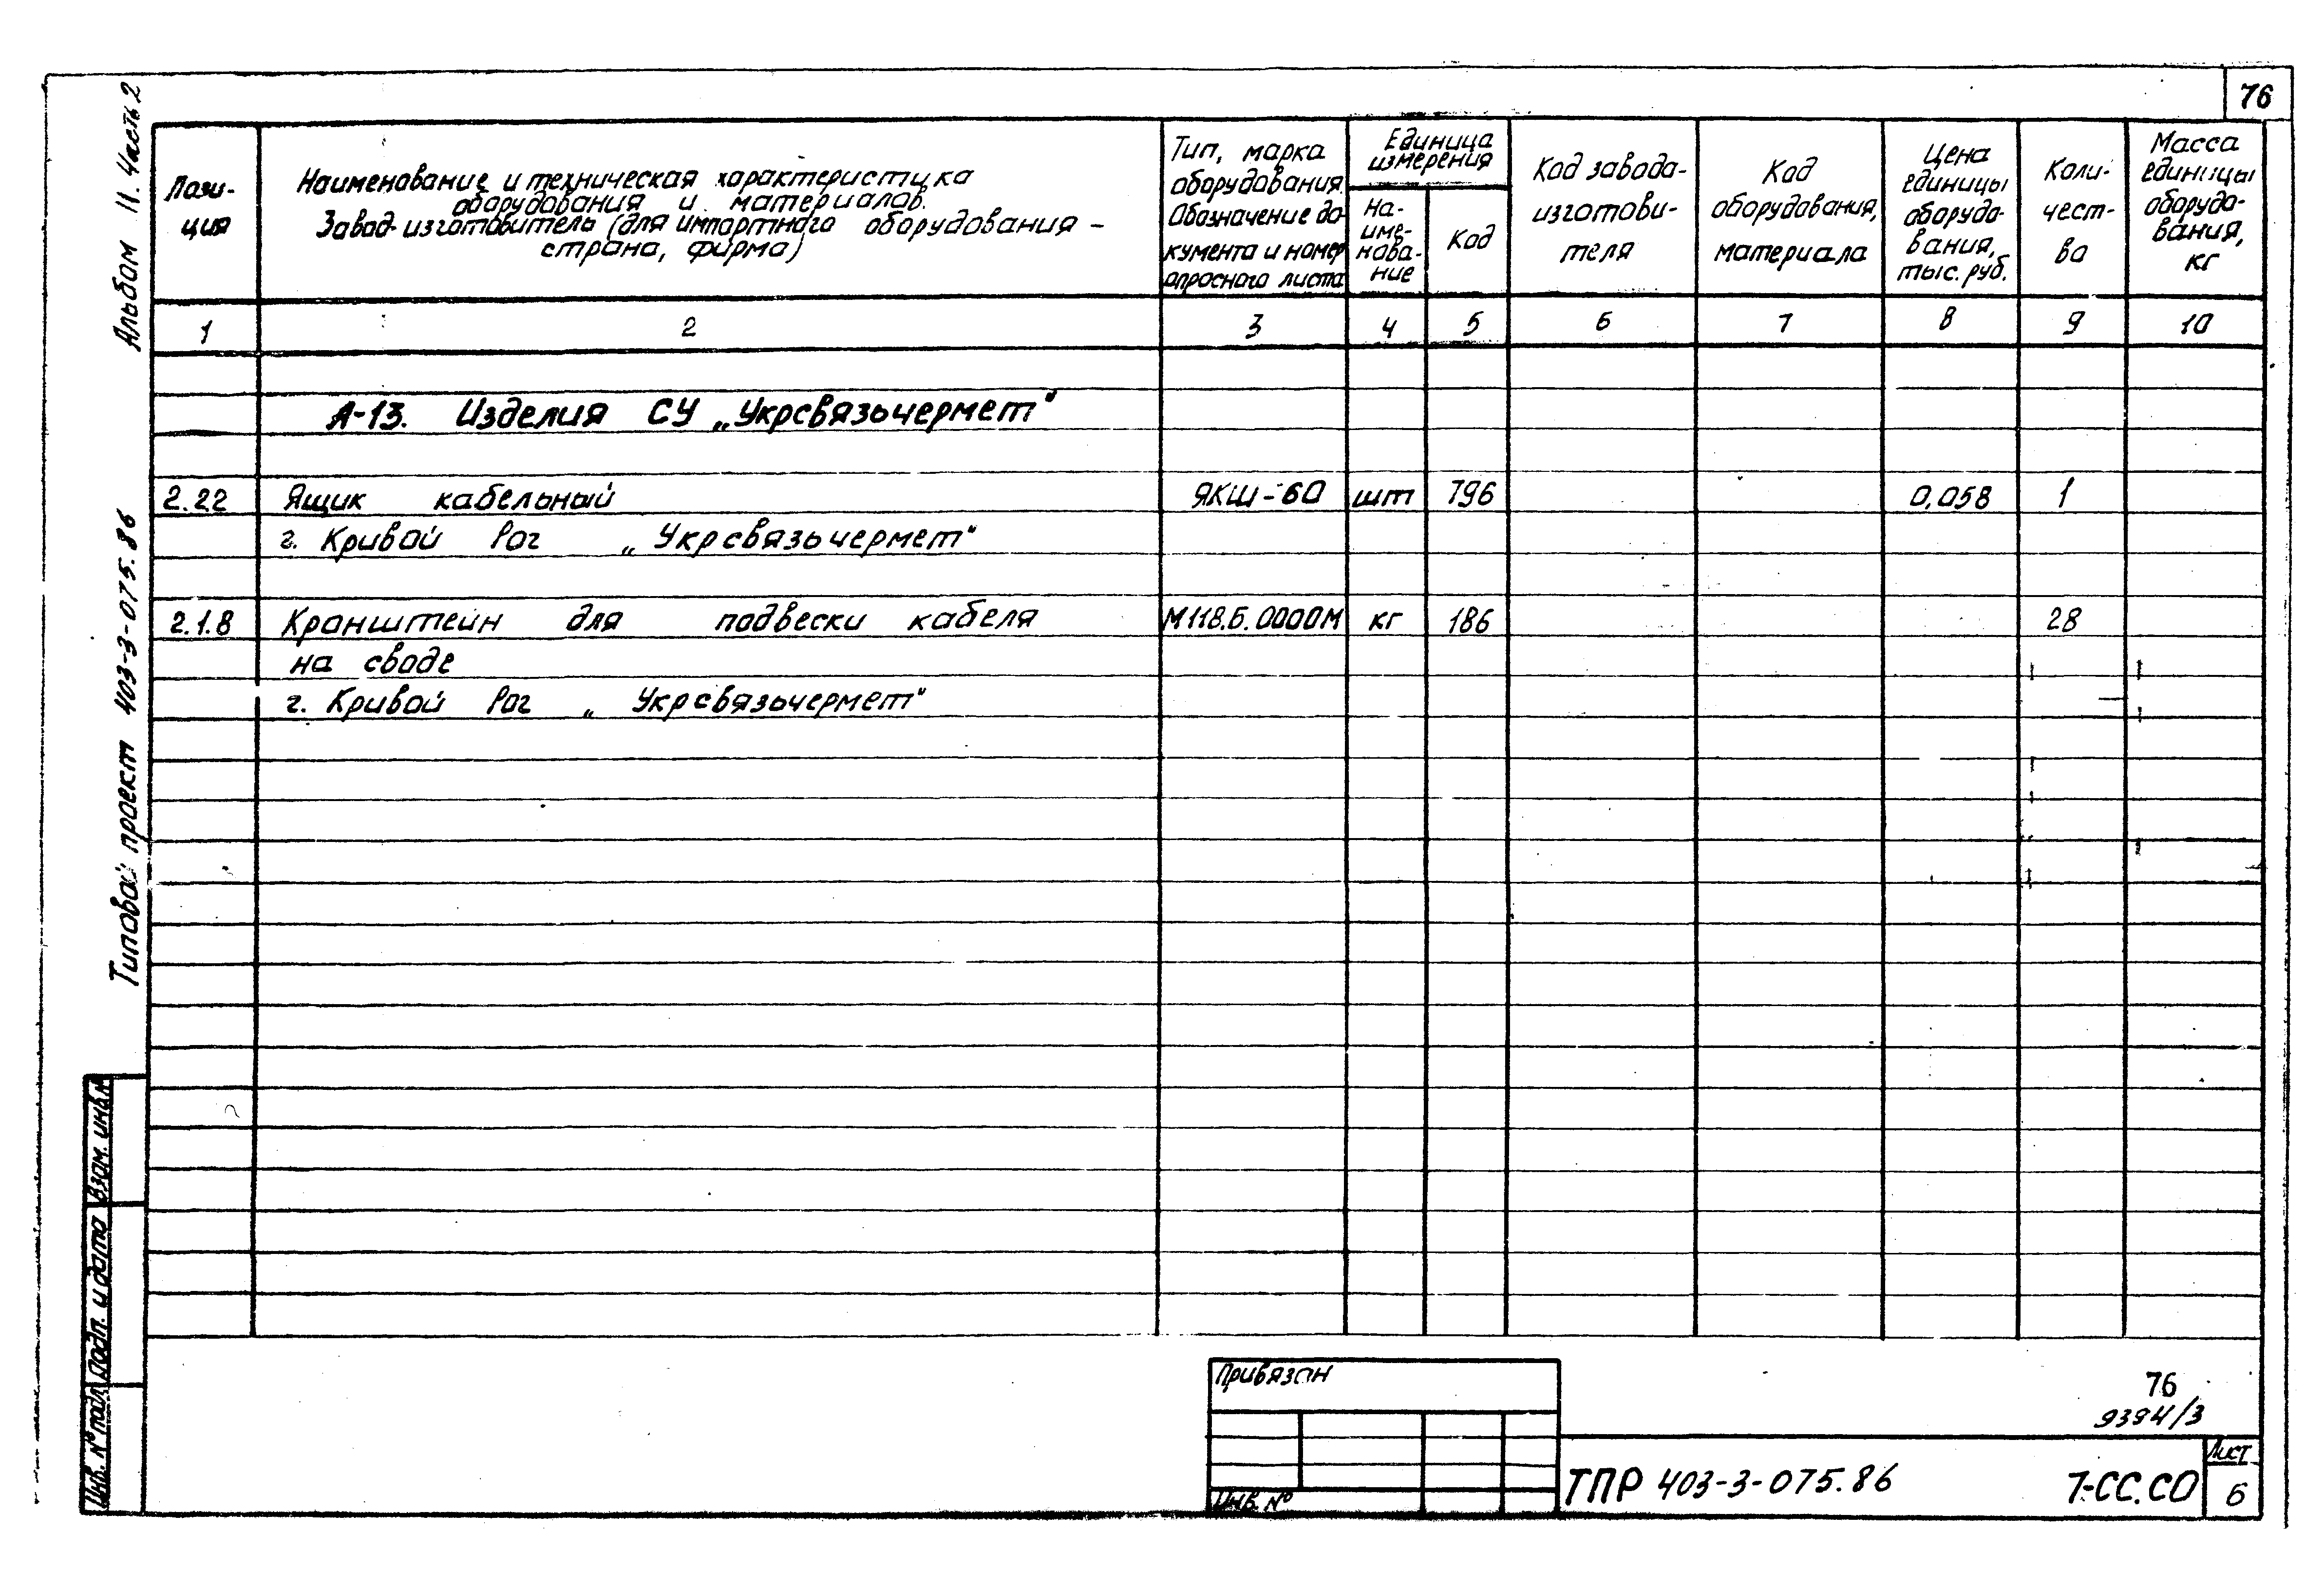 76
Альбом 11. Часть 2
Типовой проект 403-3-075.86
Пози-
ция
Наименование и техническая характеристика
оборудования и материалов.
Завод-изготовитель (для импортного оборудования -
страна, фирма)
Тип, марка
оборудования.
Обозначение до-
кумента и номер
опросного листа
Единица
измерения
На-
име-
нова-
ние
Код
Код завода-
изготови-
теля
Код
оборудования,
материала
Цена
единицы
оборудо-
вания,
тыс. руб.
Коли-
чест-
во
Масса
единицы
оборудо-
вания,
кг
1 2 3 4 5 6 7 8 9 10
А-13. Изделия СУ „Укрсвязьчермет"
2.22 Ящик кабельный ЯКШ-60 шт 796 0,058 1
г. Кривой Рог „Укрсвязьчермет"
2.1.8 Кронштейн для подвески кабеля М118.Б.0000М кг 186 28
на своде
г. Кривой Рог „Укрсвязьчермет"
Взам. инв. №
Подп. и дата
Инв. № подл.
Привязан
Инв. №
76
9394/3
ТПР 403-3-075.86 7-СС.СО
Лист
6